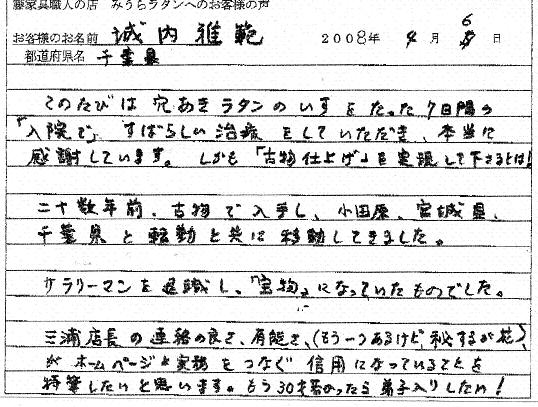 籐家具職人の店 みうらラタンへのお客様の声
お客様のお名前 城内雅範 2008年 4月 6日
都道府県名 千葉県
このたびは穴あきラタンのいすをたった7日間の
「入院で」すばらしい治療をしていただき、本当に
感謝しています。しかも「古物仕上げ」を実現して下さるとは!
二十数年前、古物で入手し、小田原、宮城県、
千葉県と転勤と共に移動してきました。
サラリーマンを退職し、「宝物」になっていたものでした。
三浦店長の連絡の良さ、有能さ、(もう一つあるけど秘するが花)
がホームページと実務をつなぐ信用になっていることを
特筆したいと思います。もう30才若かったら弟子入りしたい!